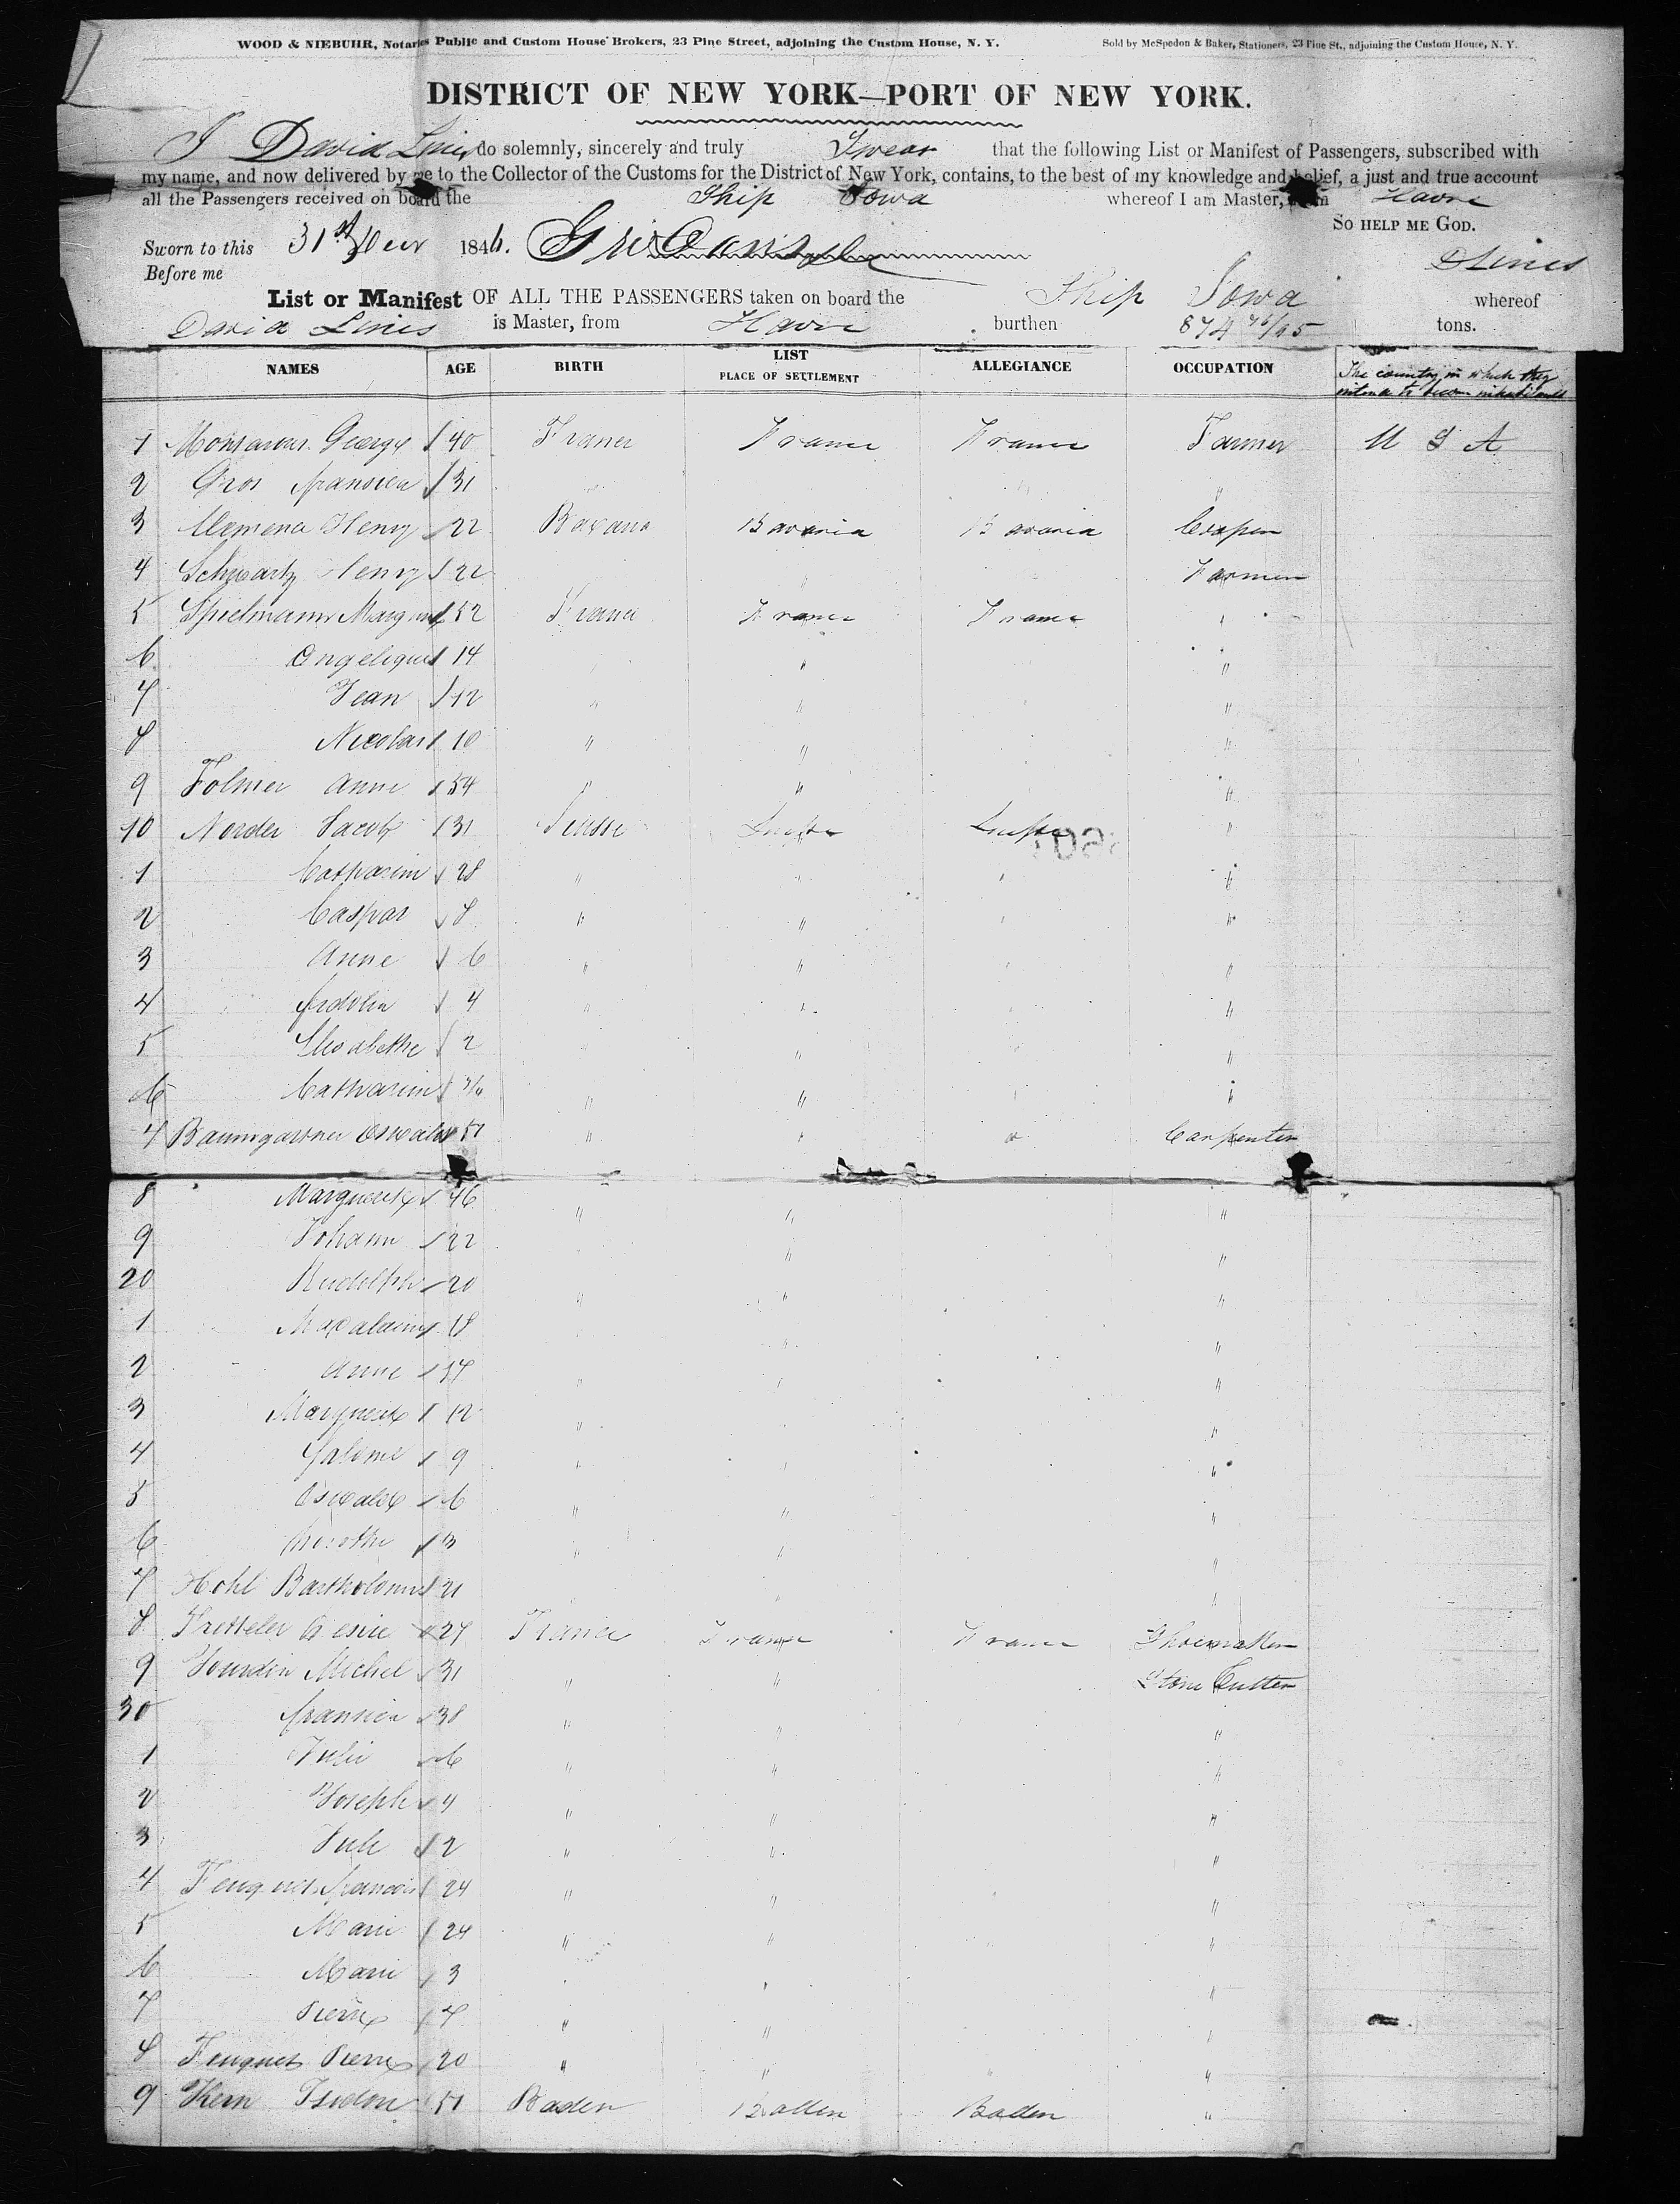 WOOD & NIEBUHR, Notaries Public and Custom House Brokers, 23 Pine Street, adjoining the Custom House, N. Y.
Sold by McSpedon & Baker, Stationers, 23 Pine St., adjoining the Custom House, N. Y.
DISTRICT OF NEW YORK—PORT OF NEW YORK.
I David Lines do solemnly, sincerely and truly Swear that the following List or Manifest of Passengers, subscribed with
my name, and now delivered by me to the Collector of the Customs for the District of New York, contains, to the best of my knowledge and belief, a just and true account
all the Passengers received on board the Ship Iowa whereof I am Master, from Havre
SO HELP ME GOD.
Sworn to this 31st 1846.
Before me
D Lines
List or Manifest OF ALL THE PASSENGERS taken on board the Ship Iowa whereof
David Lines is Master, from Havre burthen 874 76/95 tons.
NAMES AGE BIRTH LIST PLACE OF SETTLEMENT ALLEGIANCE OCCUPATION The country in which they
intend to become inhabitants
1 George 40 France France France Farmer U S A
2 Gros 31 "
3 Henry 22 Bavaria Bavaria Bavaria Cooper
4 Schwartz Henry 22 Farmer
5 Spielmann 52 France France France "
6 Angelique 14 " "
7 Jean 12 " " "
8 Nicolas 10 " " "
9 Folmer Anne 54 " " "
10 Norder Jacob 31 Suisse Suisse Suisse "
1 Catharine 28 " " " "
2 Caspar 8 " " " "
3 Anne 6 " " " "
4 Fridolin 4 " " "
5 Elisabethe 2 " "
6 Catharine " " "
7 Baumgartner Oswald 51 " " " Carpenter
8 Marguerite 46 " " "
9 Johann 22 " "
20 Rudolph 20 " " "
1 18 " "
2 Anne 17 " " "
3 Marguerite 12 " "
4 Salome 9 " " "
5 Oswald 6 " " "
6 3 " " "
7 Hohl 21 " "
8 Desire 27 France France France Shoemaker
9 Jourdin Michel 31 " " Stone Cutter
30 38 " " "
1 Julie 6 " " "
2 Joseph 4 " " "
3 2 " " "
4 Francois 24 " " "
5 Marie 24 " " "
6 Marie 3 " "
7 Pierre 7 " " "
8 Feuquet Pierre 20 " " "
9 Kern Isidore 51 Baden Baden Baden "